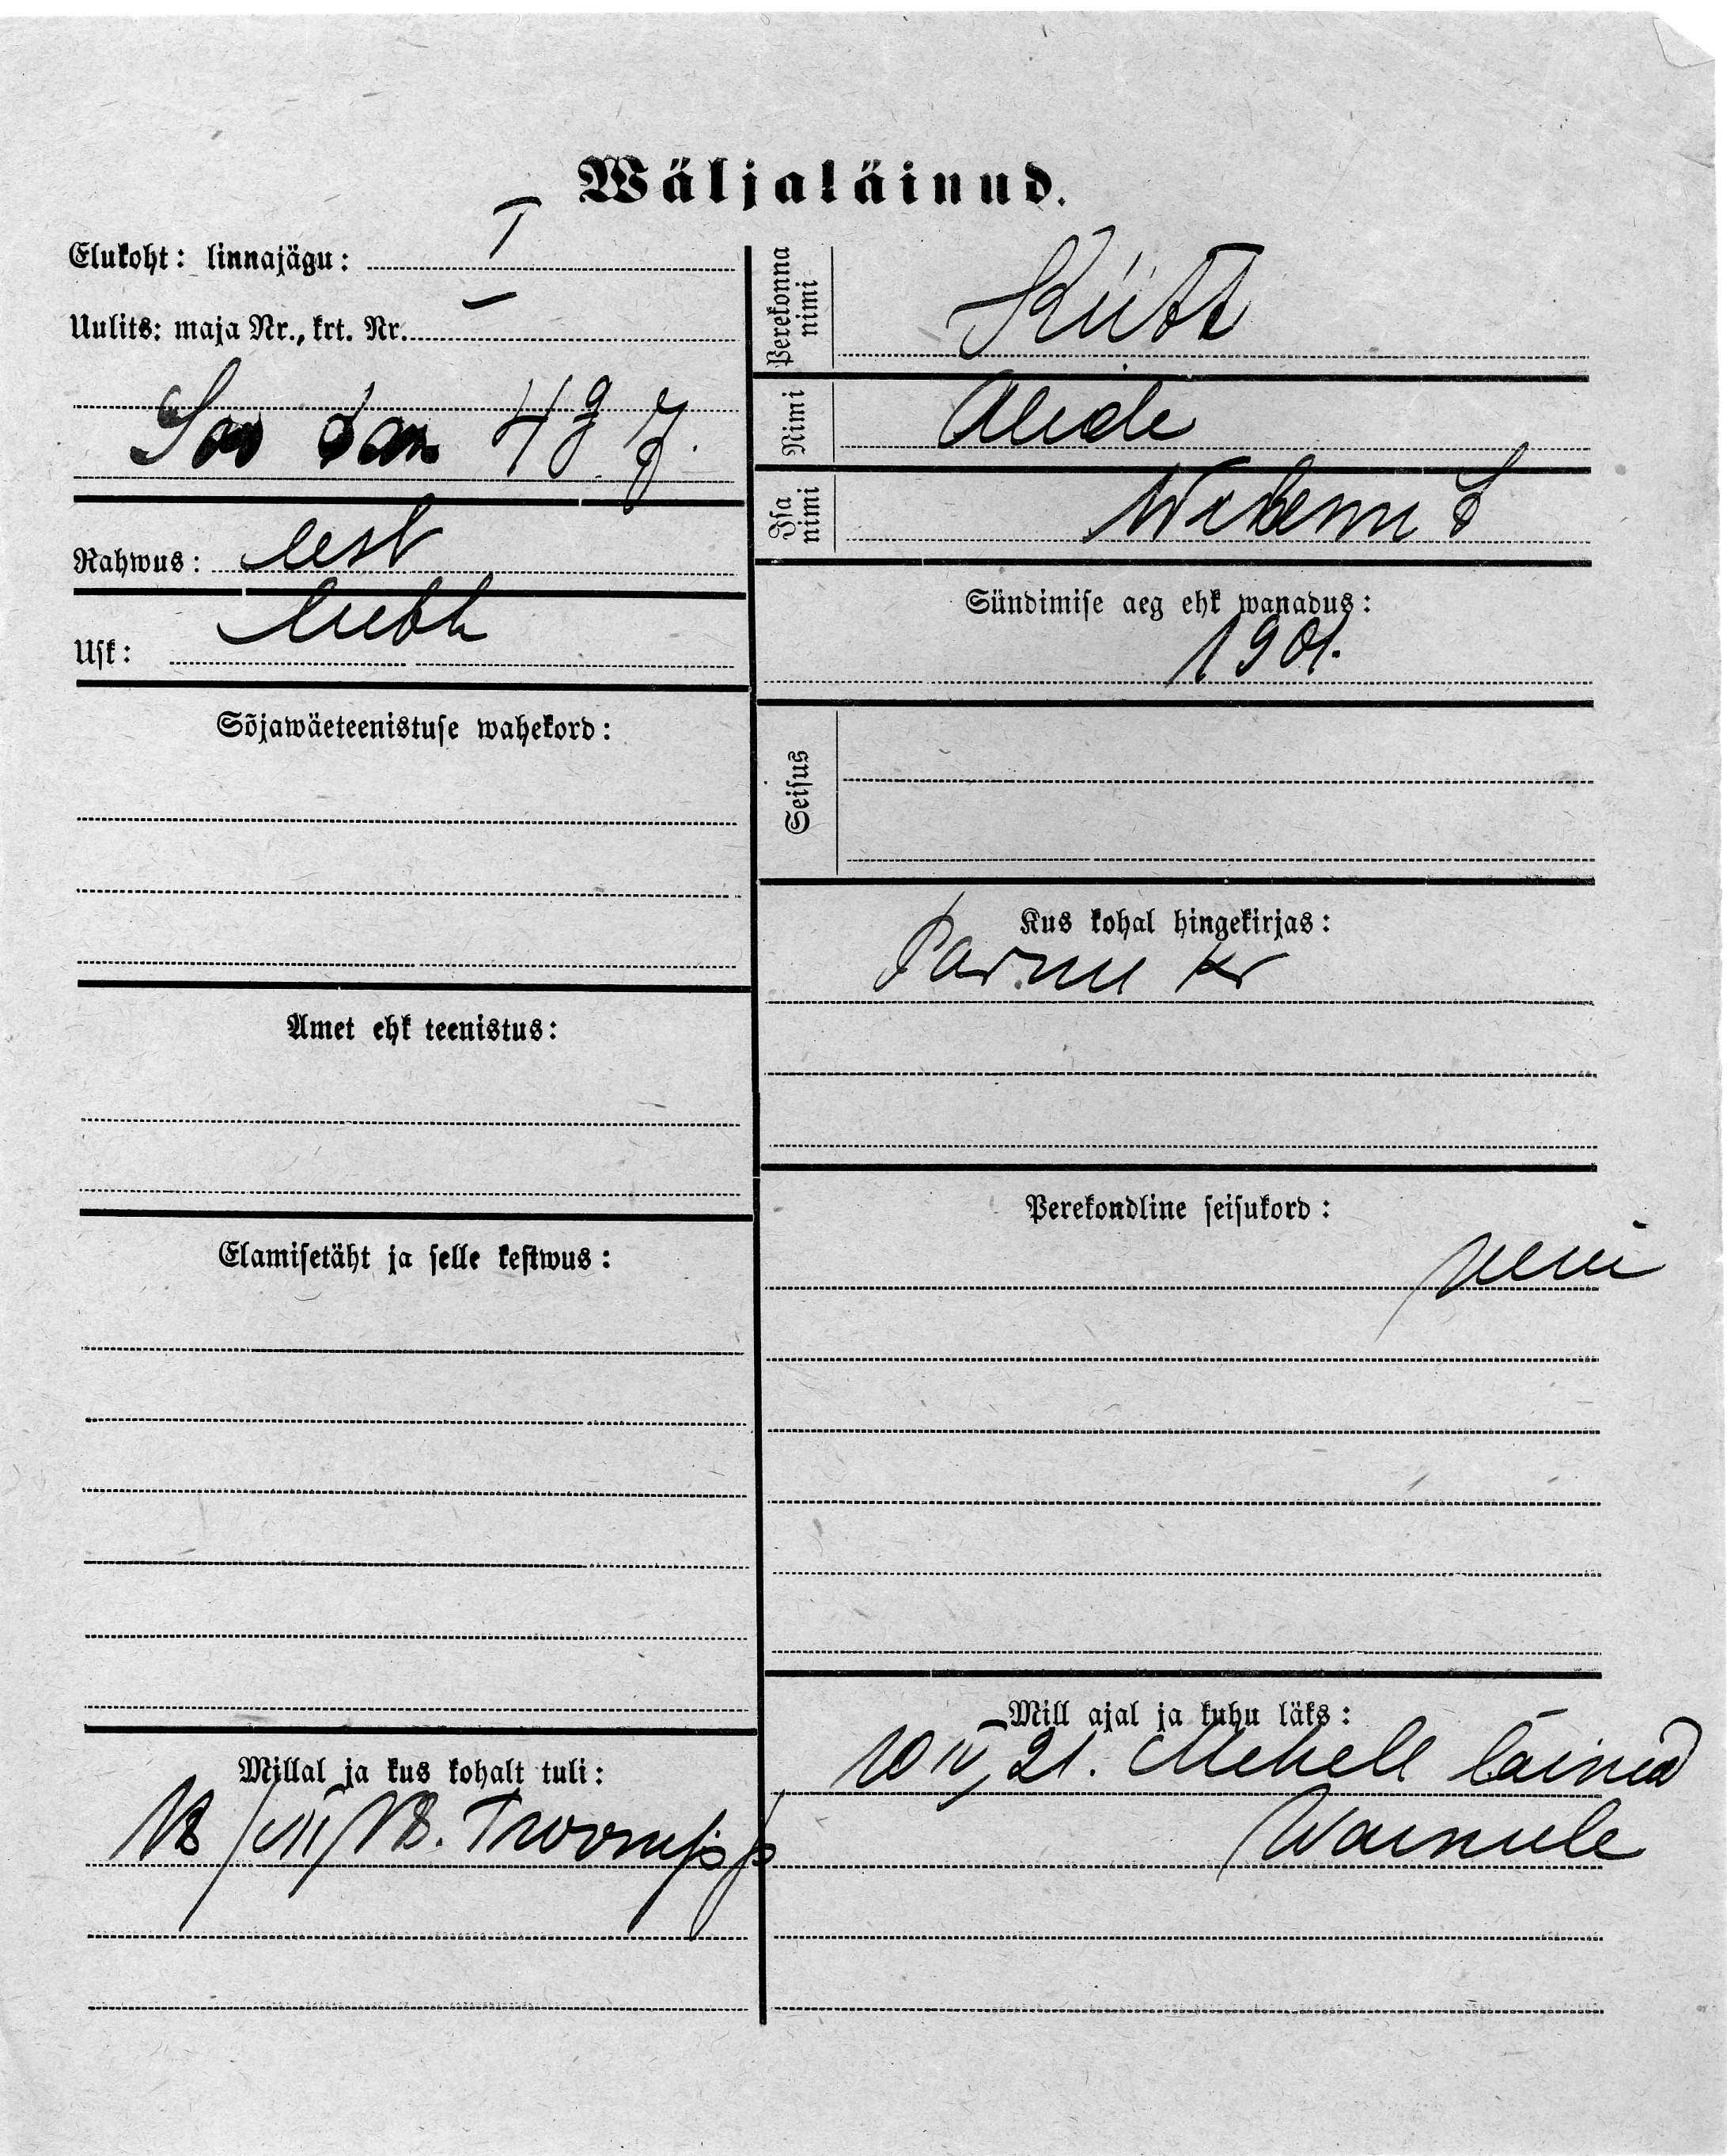 Wäljaläinud.
Elukoht: linnajägu: I
Uulits: maja Nr., krt. Nr.
49
Rahwus: eest
Usk: luth
Sõjawäeteenistuse wahekord:
Amet ehk teenistus:
Elamisetäht ja selle kestwus:
Millal ja kus kohalt tuli:
Perekonna nimi Kütt
Nimi Alide
Isa nimi
Sündimise aeg ehk wanadus:
1901.
Seisus
Kus kohal hingekirjas:
Parnu kr
Perekondline seisukord:
neiu
Mill ajal ja kuhu läks:
10 IV 21. Mehele läinud